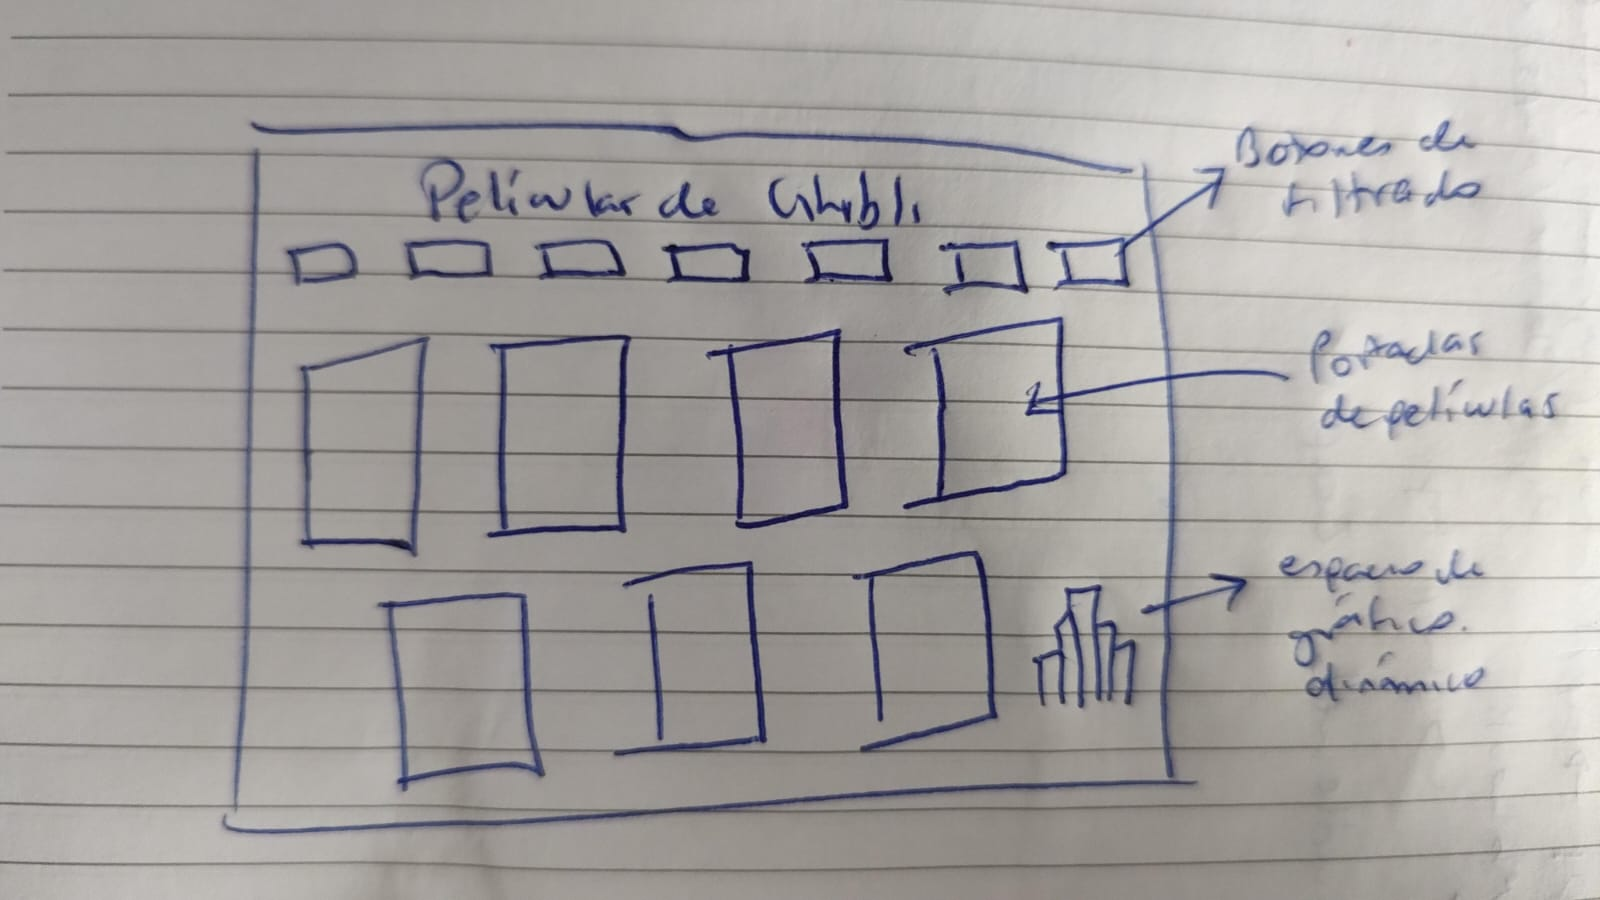 Películas de Ghibli
Botones de
filtrado
Portadas
de películas
espacio de
gráfico.
dinámico